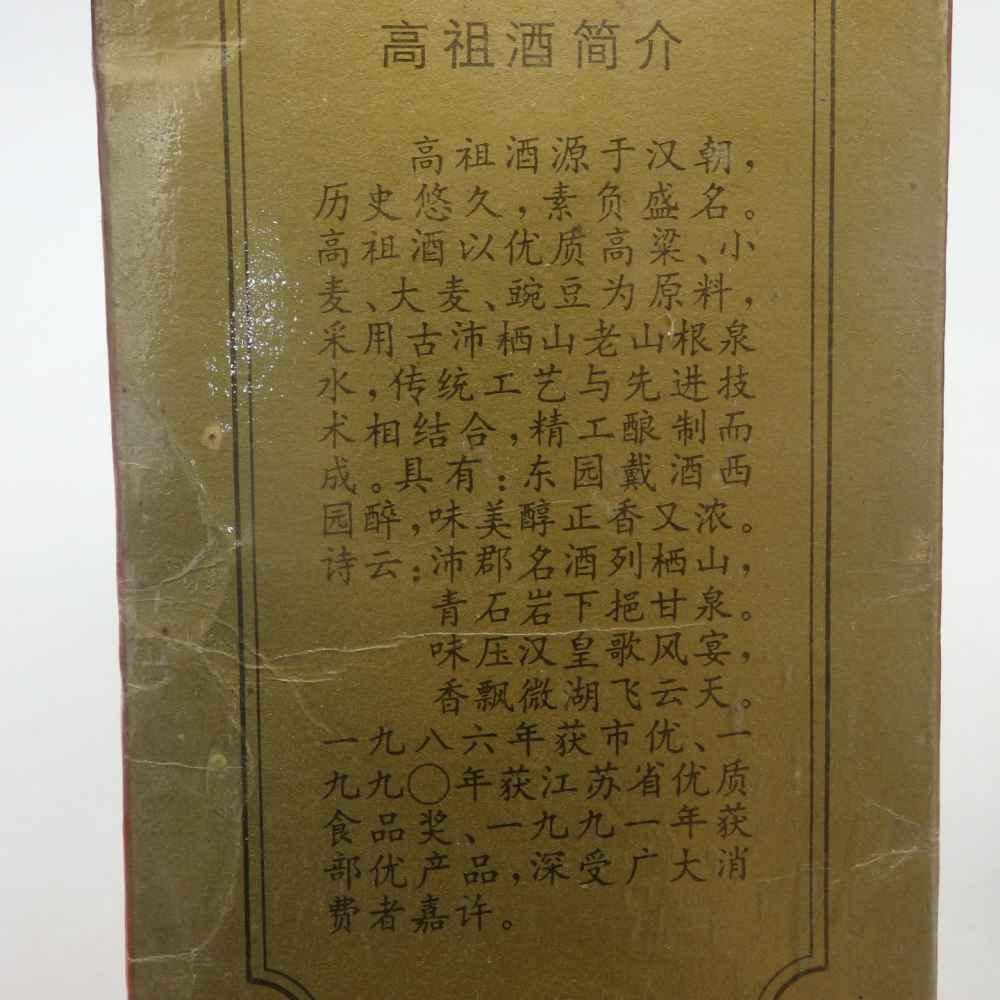 高祖酒简介
高祖酒源于汉朝，
历史悠久，素负盛名。
高祖酒以优质高粱、小
麦、大麦、豌豆为原料，
采用古沛栖山老山根泉
水，传统工艺与先进技
术相结合，精工酿制而
成。具有：东园戴酒西
园醉，味美醇正香又浓。
诗云：沛郡名酒列栖山，
青石岩下挹甘泉。
味压汉皇歌风宴，
香飘微湖飞云天。
一九八六年获市优、一
九九〇年获江苏省优质
食品奖、一九九一年获
部优产品，深受广大消
费者嘉许。